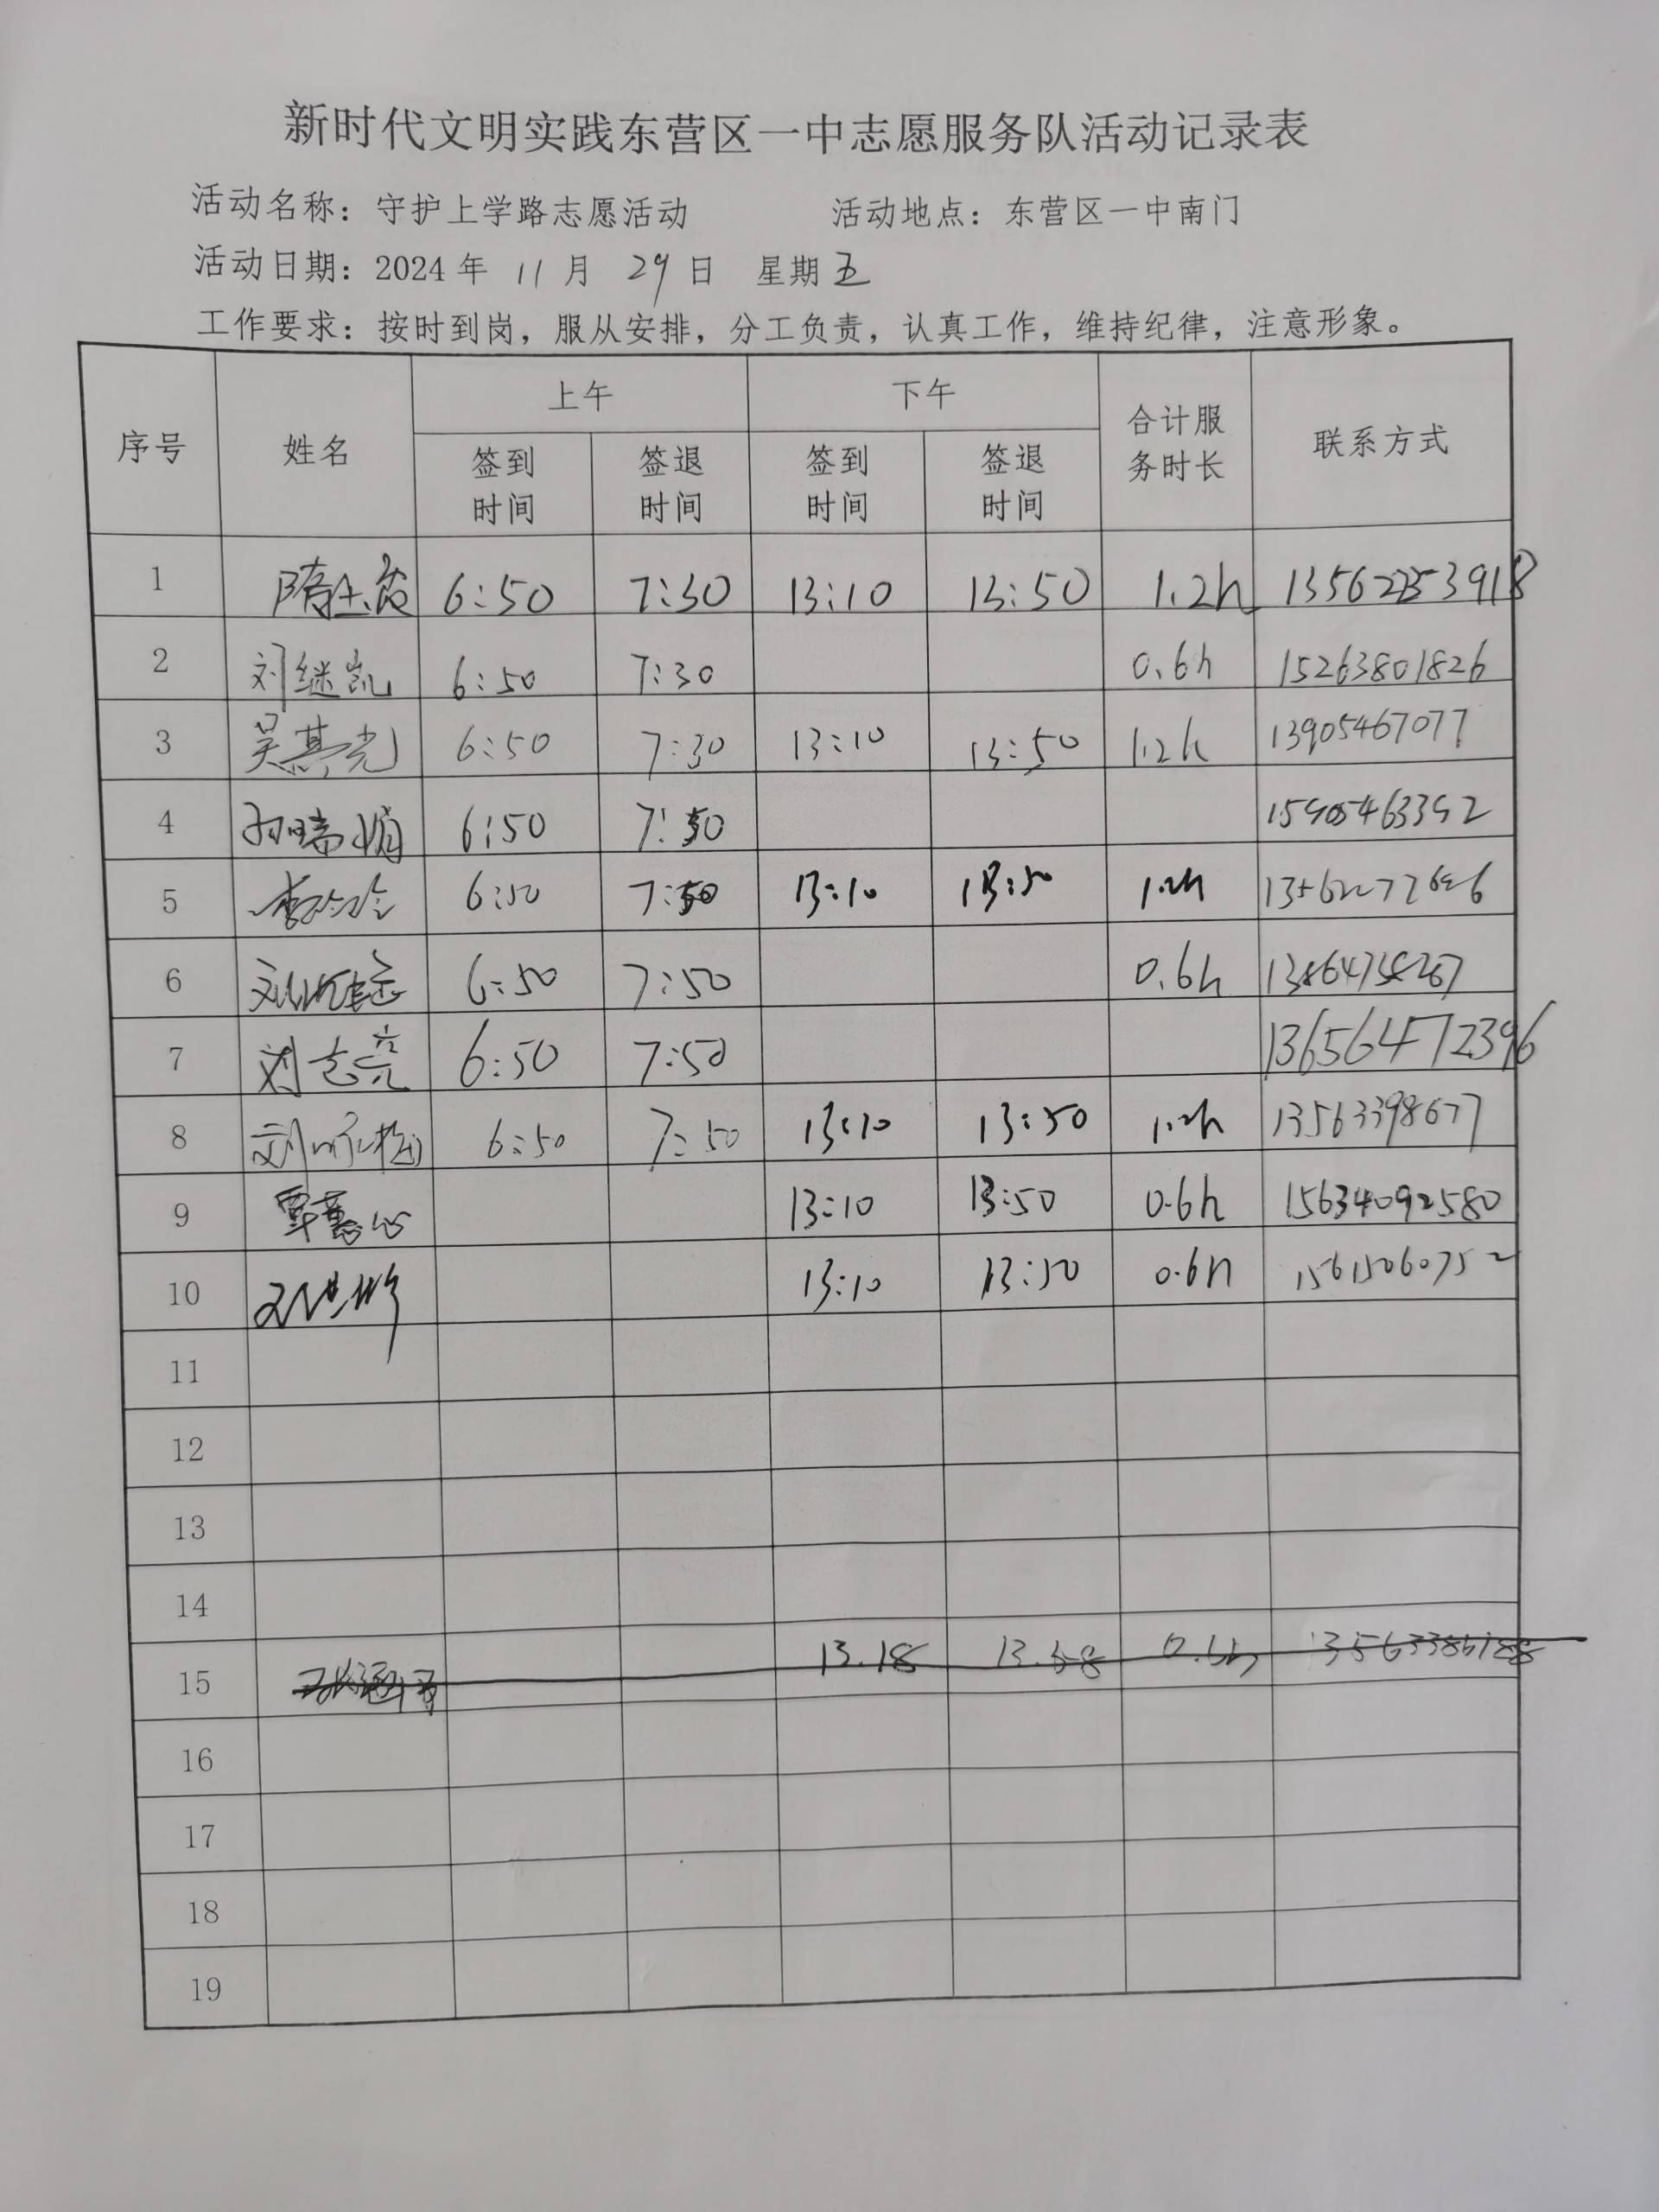 新时代文明实践东营区一中志愿服务队活动记录表
活动名称：守护上学路志愿活动 活动地点：东营区一中南门
活动日期：2024年 11月 29日 星期五
工作要求：按时到岗，服从安排，分工负责，认真工作，维持纪律，注意形象。
序号 姓名 上午 下午 合计服务时长 联系方式
签到时间 签退时间 签到时间 签退时间
1 6:50 7:30 13:10 13:50 1.2h
2 刘继凯 6:50 7:30 0.6h 15263801826
3 吴其光 6:50 7:30 13:10 13:50 1.2h 13905467077
4 6:50 15905463392
5 6:50 13:10 13:50 1.2h
6 6:50 7:50 0.6h
7 刘志亮 6:50 7:50 13656472396
8 6:50 7:50 13:10 13:50 1.2h 13563398677
9 覃慧心 13:10 13:50 0.6h 15634092580
10 13:10 13:50 0.6h 15615060752
11
12
13
14
15 13.18 13.58 0.6h
16
17
18
19